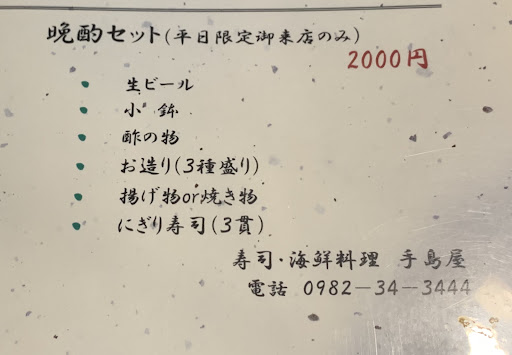 晩酌セット(平日限定御来店のみ)
2000円
生ビール
小鉢
酢の物
お造り(3種盛り)
揚げ物or焼き物
にぎり寿司(3貫)
寿司・海鮮料理 手島屋
電話 0982-34-3444